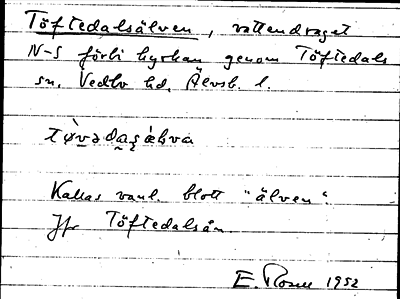 Töftedalsälven, vattendraget
N-S förbi kyrkan genom Töftedals
sn, Vedbo hd, Älvsb. l.
Kallas vanl. blott "älven".
Jfr Töftedalsån.
E. Rosell 1952